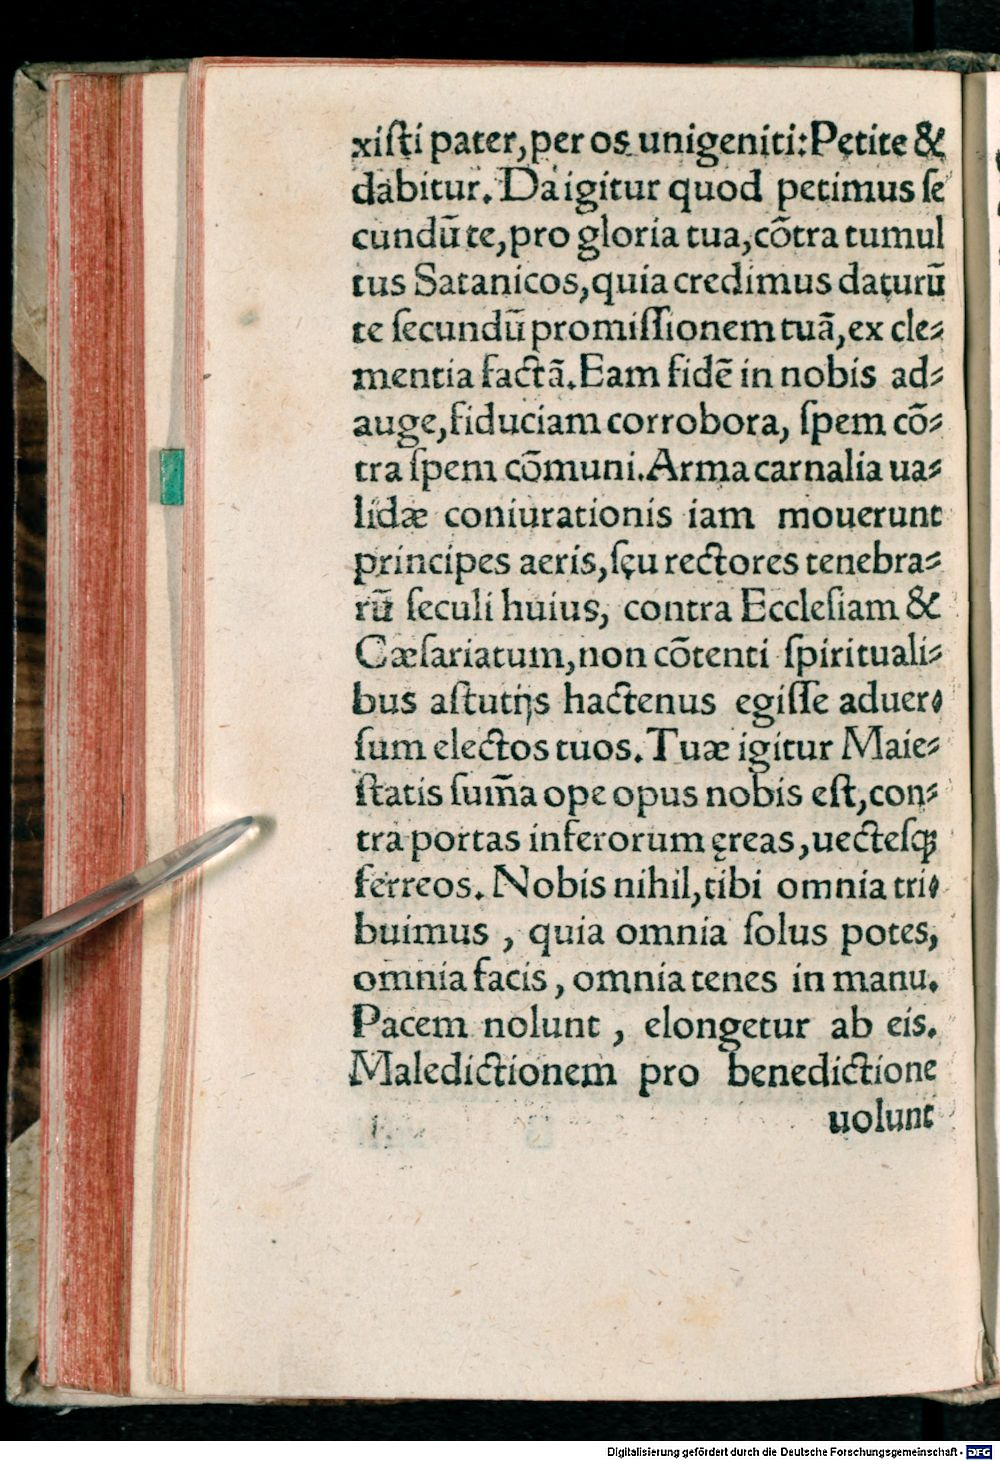 xiſti pater, per os unigeniti: Petite &
dabitur. Da igitur quod petimus ſe
cundũ te, pro gloria tua, cõtra tumul
tus Satanicos, quia credimus daturũ
te ſecundũ promiſſionem tuã, ex cle⸗
mentia factã. Eam fidẽ in nobis ad⸗
auge, fiduciam corrobora, ſpem cõ⸗
tra ſpem cõmuni. Arma carnalia ua⸗
lidæ coniurationis iam mouerunt
principes aeris, ſęu rectores tenebra⸗
rũ ſeculi huius, contra Eccleſiam &
Cæſariatum, non cõtenti ſpirituali⸗
bus aſtutijs hactenus egiſſe aduer⸗
ſum electos tuos. Tuæ igitur Maie⸗
ſtatis ſum̃a ope opus nobis eſt, con⸗
tra portas inferorum ęreas, uecteſq;
ferreos. Nobis nihil, tibi omnia tri⸗
buimus, quia omnia ſolus potes,
omnia facis, omnia tenes in manu.
Pacem nolunt, elongetur ab eis.
Maledictionem pro benedictione
uolunt
Digitalisierung gefördert durch die Deutsche Forschungsgemeinschaft - DFG